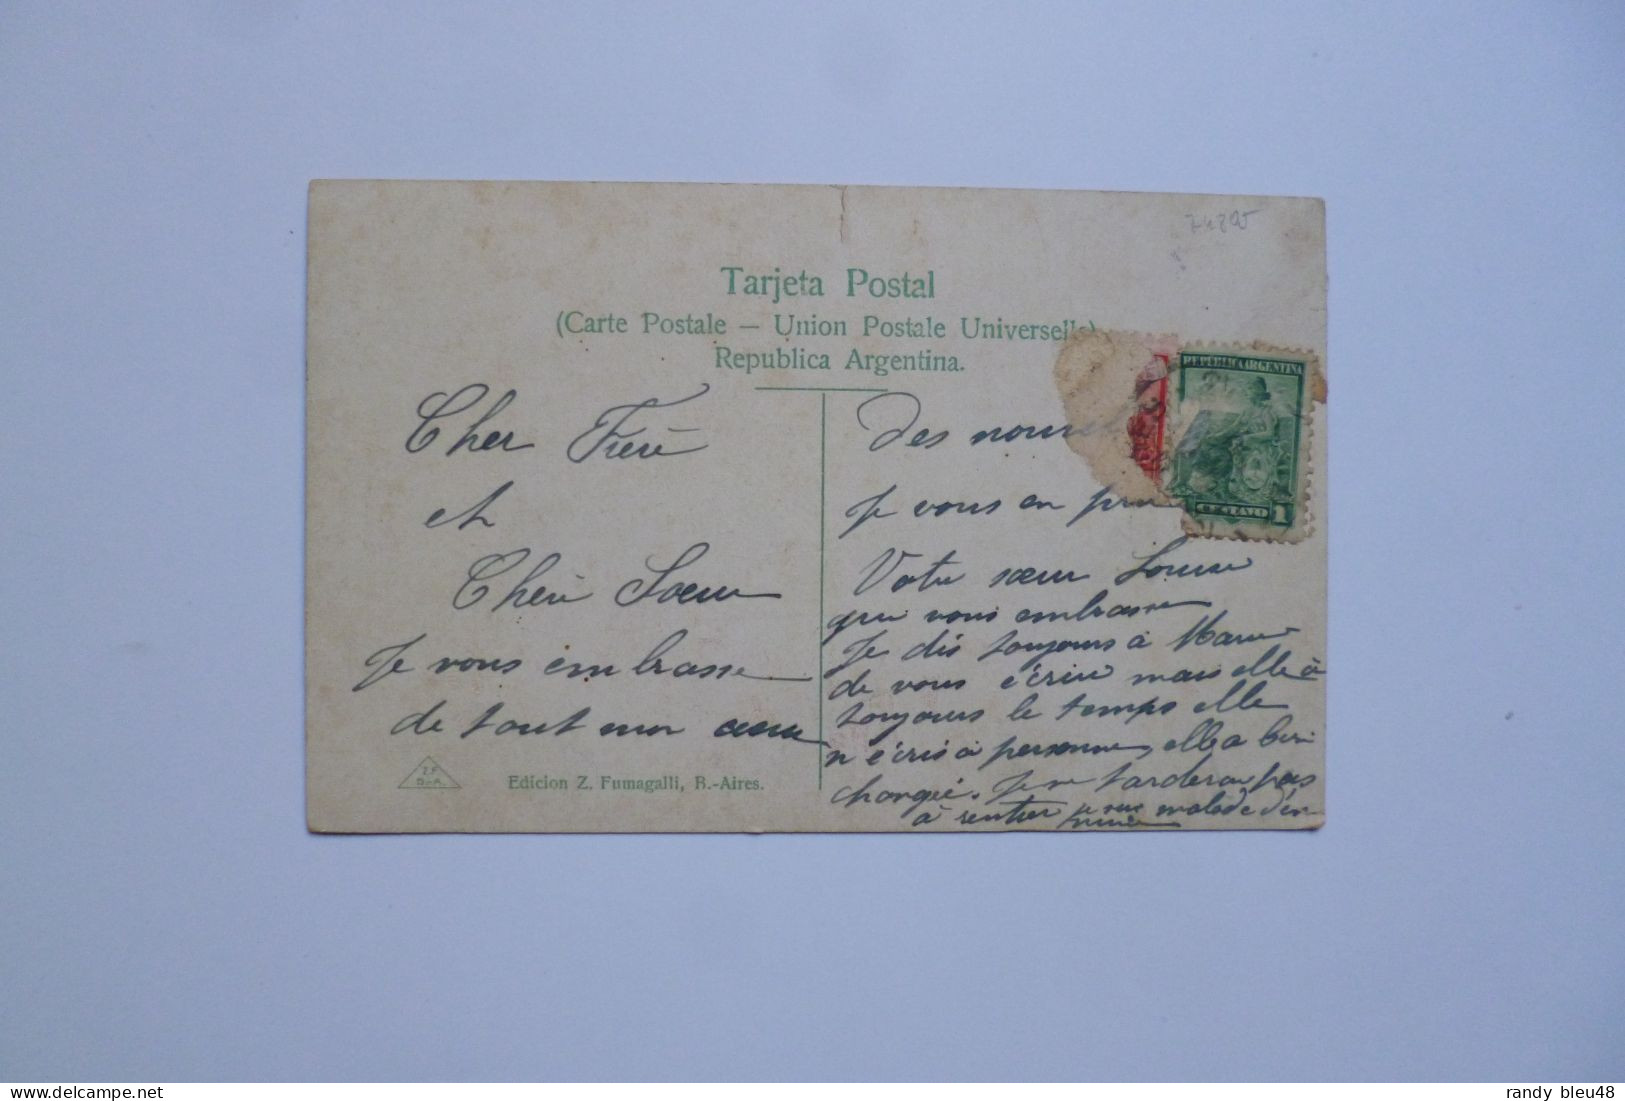 Tarjeta Postal
(Carte Postale — Union Postale Universelle)
Republica Argentina.
REPUBLICA ARGENTINA
CENTAVO 1
Cher Frère
et
Chère Sœur
Je vous embrasse
de tout mon cœur
Z.F.
B-A.
Edicion Z. Fumagalli, B.-Aires.
des nouvel
Je vous en prie
Votre sœur Louise
que vous embrasse
Je dis toujours à Marie
de vous écrire mais elle à
toujours le temps elle
n'écris à personne, elle a bien
changée. Je ne tarderai pas
à rentrer je suis malade d'en
delcampe.net
randy bleu48